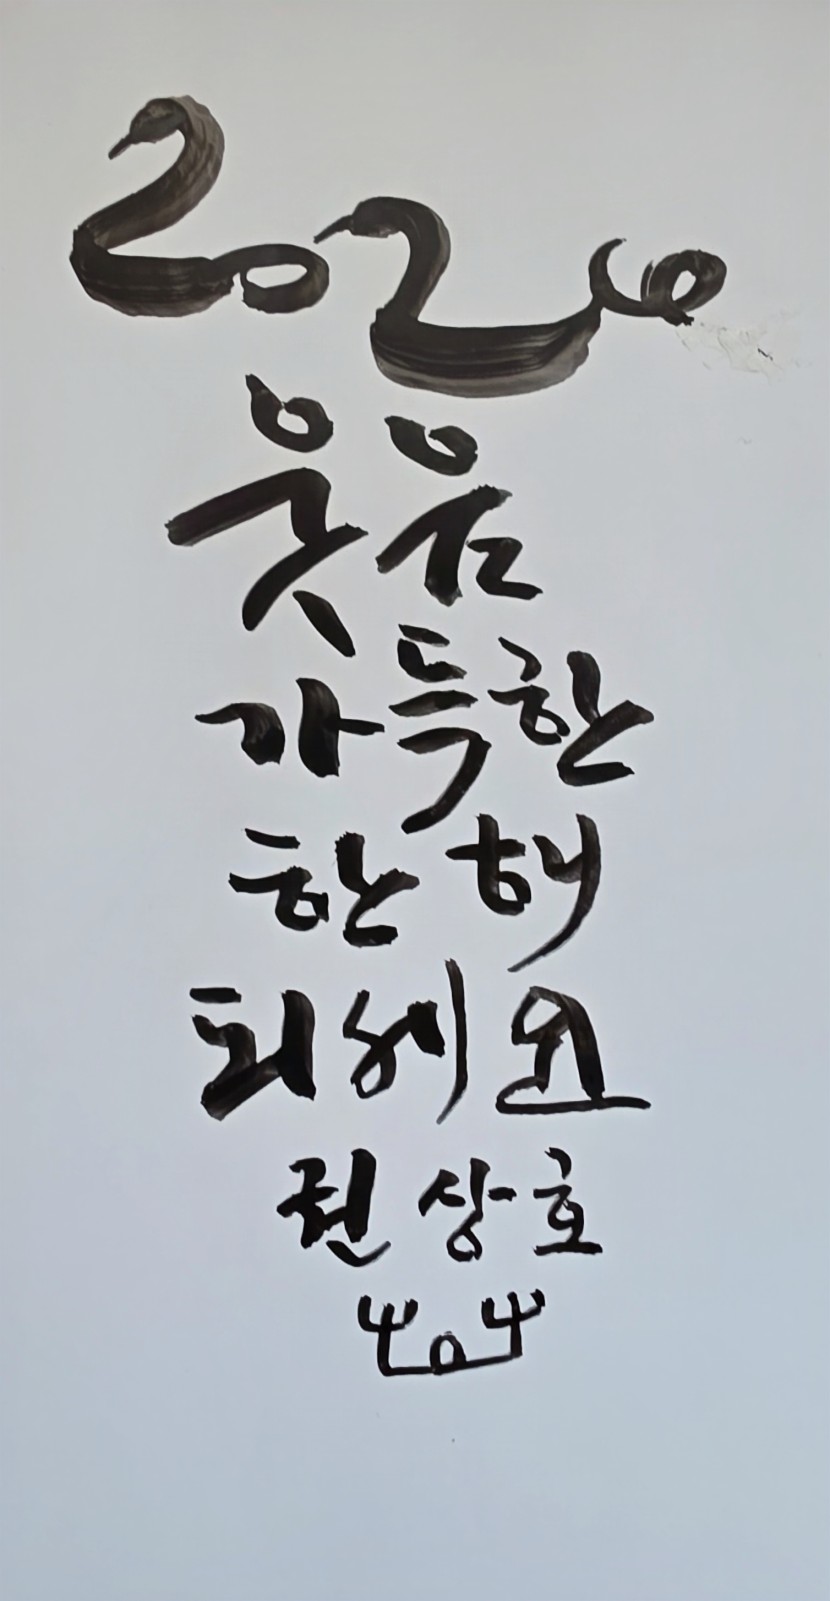 2026
웃음
가득한
한해
되세요
권상호